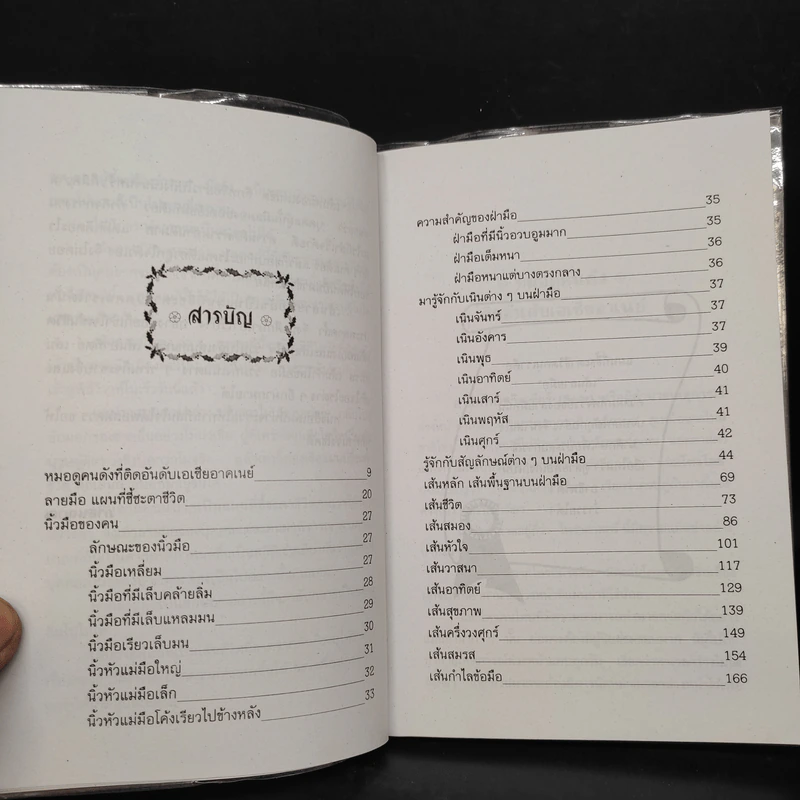 สารบัญ
หมอดูคนดังที่ติดอันดับเอเซียอาคเนย์ 9
ลายมือ แผนที่ชี้ชะตาชีวิต 20
นิ้วมือของคน 27
ลักษณะของนิ้วมือ 27
นิ้วมือเหลี่ยม 27
นิ้วมือที่มีเล็บคล้ายลิ่ม 28
นิ้วมือที่มีเล็บแหลมมน 29
นิ้วมือเรียวเล็บมน 30
นิ้วหัวแม่มือใหญ่ 31
นิ้วหัวแม่มือเล็ก 32
นิ้วหัวแม่มือโค้งเรียวไปข้างหลัง 33
ความสำคัญของฝ่ามือ 35
ฝ่ามือที่มีนิ้วอวบอูมมาก 35
ฝ่ามือเต็มหนา 36
ฝ่ามือหนาแต่บางตรงกลาง 36
มารู้จักกับเนินต่าง ๆ บนฝ่ามือ 37
เนินจันทร์ 37
เนินอังคาร 37
เนินพุธ 39
เนินอาทิตย์ 40
เนินเสาร์ 41
เนินพฤหัส 41
เนินศุกร์ 42
รู้จักกับสัญลักษณ์ต่าง ๆ บนฝ่ามือ 44
เส้นหลัก เส้นพื้นฐานบนฝ่ามือ 69
เส้นชีวิต 73
เส้นสมอง 86
เส้นหัวใจ 101
เส้นวาสนา 117
เส้นอาทิตย์ 129
เส้นสุขภาพ 139
เส้นครึ่งวงศุกร์ 149
เส้นสมรส 154
เส้นกำไลข้อมือ 166